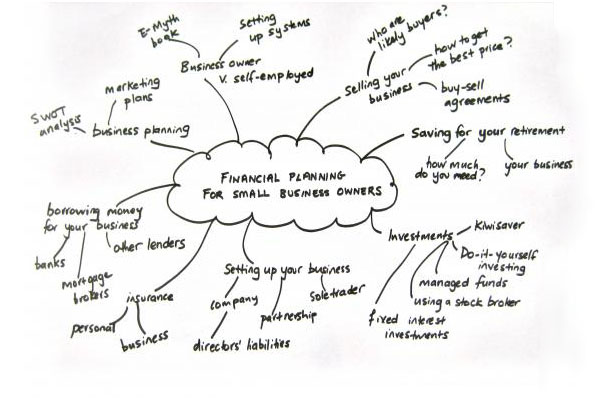 E-Myth
book
Setting
up systems
Business owner
V. self-employed
who are
likely buyers?
how to get
the best price?
Selling your
business
buy-sell
agreements
marketing
plans
SWOT
analysis
business planning
Saving for your retirement
how much
do you need?
your business
FINANCIAL PLANNING
FOR SMALL BUSINESS OWNERS
borrowing money
for your business
banks
mortgage
brokers
other lenders
insurance
personal
business
Setting up your business
company
partnership
soletrader
directors' liabilities
Investments
Kiwisaver
Do-it-yourself
investing
managed funds
using a stock broker
fixed interest
investments